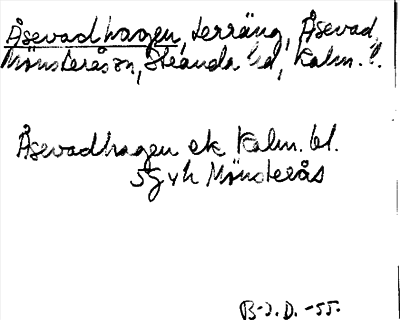 Åsevadhagen, terräng, Åsevad,
Mönsterås sn, Stranda hd, Kalm. l.
Åsevadhagen ek Kalm. bl.
5G v h Mönsterås
B-J.D. -55.